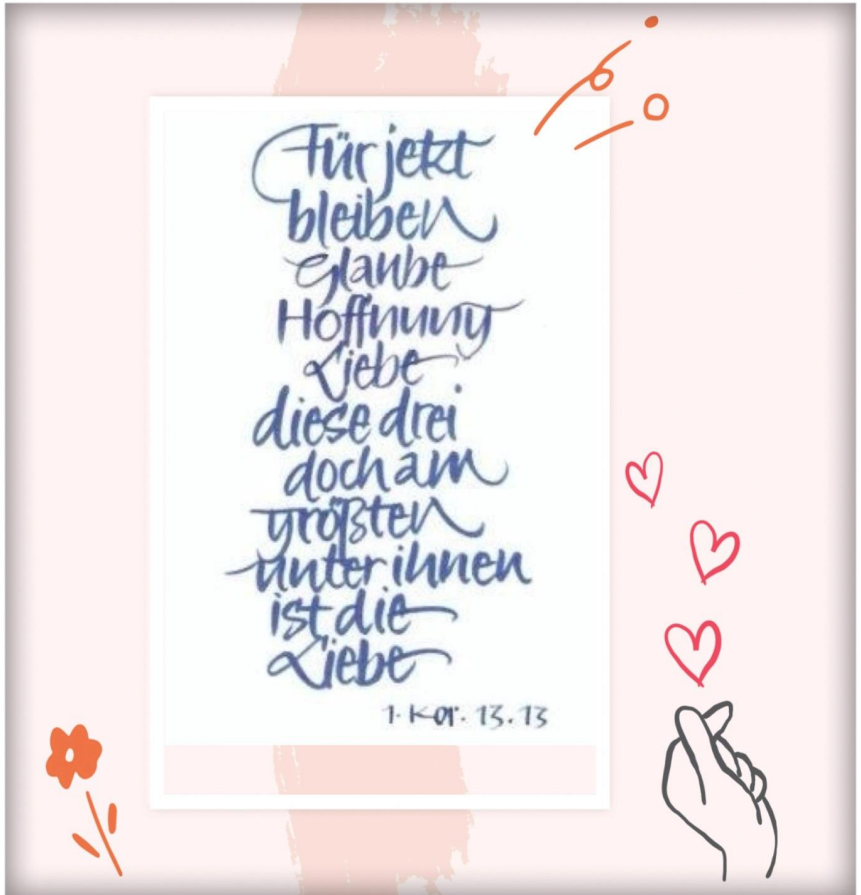 Für jetzt
bleiben
Glaube
Hoffnung
Liebe
diese drei
doch am
größten
unter ihnen
ist die
Liebe
1. Kor. 13.13